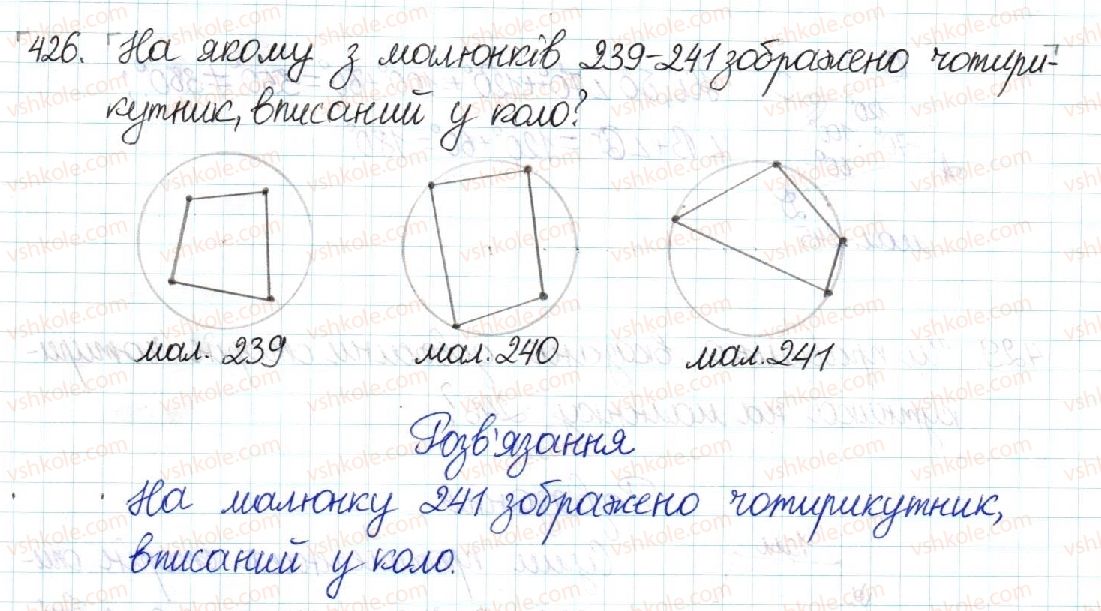 426. На якому з малюнків 239-241 зображено чотири-
кутник, вписаний у коло?
мал. 239 мал. 240 мал. 241
Розв'язання
На малюнку 241 зображено чотирикутник,
вписаний у коло.
vshkole.com